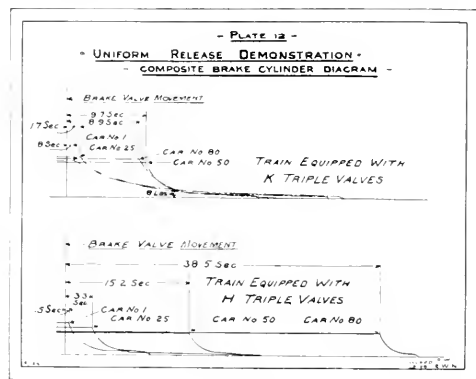 - PLATE 12 -
• UNIFORM RELEASE DEMONSTRATION •
- COMPOSITE BRAKE CYLINDER DIAGRAM -
BRAKE VALVE MOVEMENT
9.7 Sec
8.9 Sec
1.7 Sec
CAR No 1
.8 Sec
CAR No 25
CAR No 80
CAR No 50
TRAIN EQUIPPED WITH
K TRIPLE VALVES
8 LBS
BRAKE VALVE MOVEMENT
38.5 Sec
15.2 Sec
TRAIN EQUIPPED WITH
H TRIPLE VALVES
3.3
Sec
.5 Sec
CAR No 1
CAR No 25
CAR No 50
CAR No 80